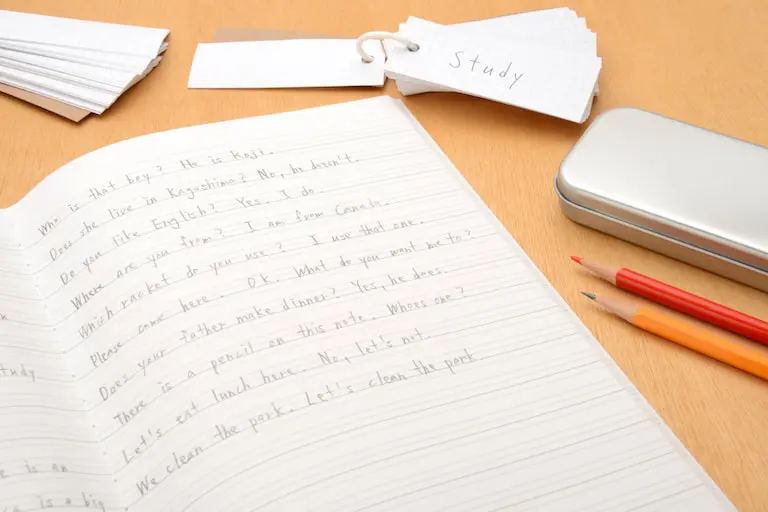 Study
Who is that boy? He is Koji.
Does she live in Kagoshima? No, he doesn't.
Do you like English? Yes. I do
Where are you from? I am from Canada.
Which racket do you use? I use that one.
Please come here. OK. What do you want me to?
Does your father make dinner? Yes, he does.
There is a pencil on this note. Whoes one?
Let's eat lunch here. No, let's not.
We clean the park. Let's clean the park.
tudy
is an
is a big